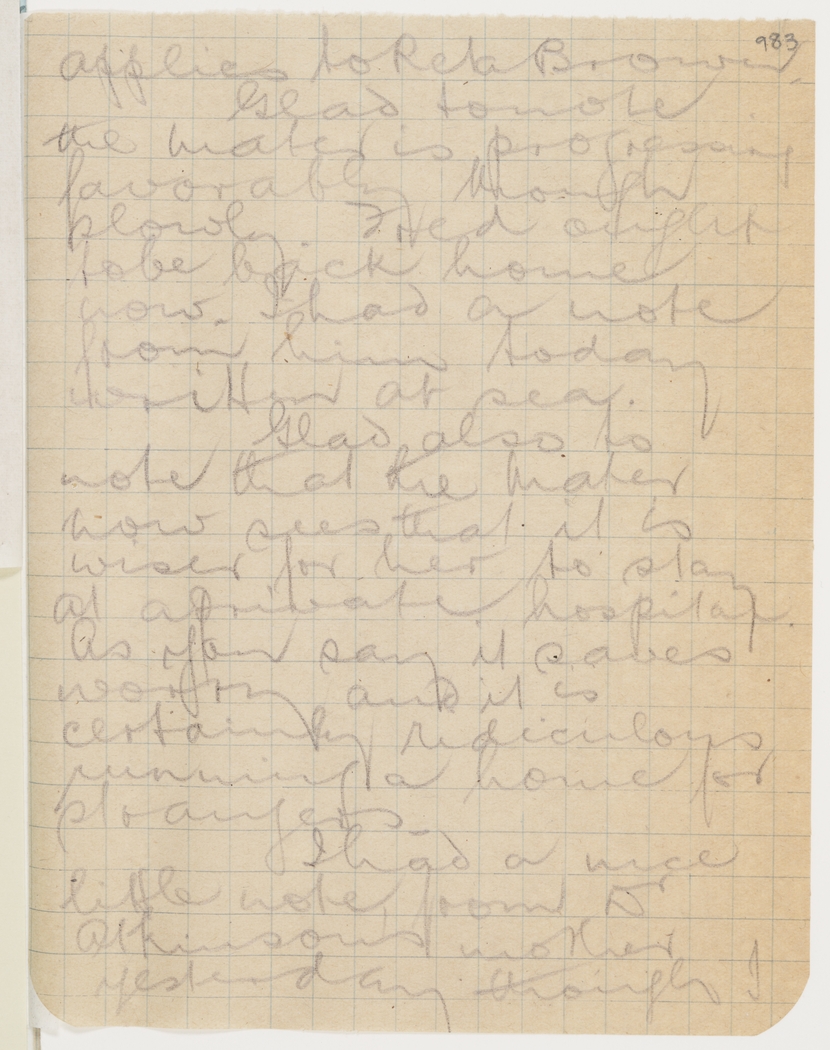 983
applies to Reta Brown.
Glad to note
the mater is progressing
favorably though
slowly Fred ought
to be back home
now. I had a note
from him today
written at sea.
Glad also to
note that the mater
now sees that it is
wiser for her to stay
at a private hospital.
As you say it saves
worry and it is
certainly ridiculous
running a home for
strangers
I had a nice
little note from Dr
Atkinson's mother
yesterday though I